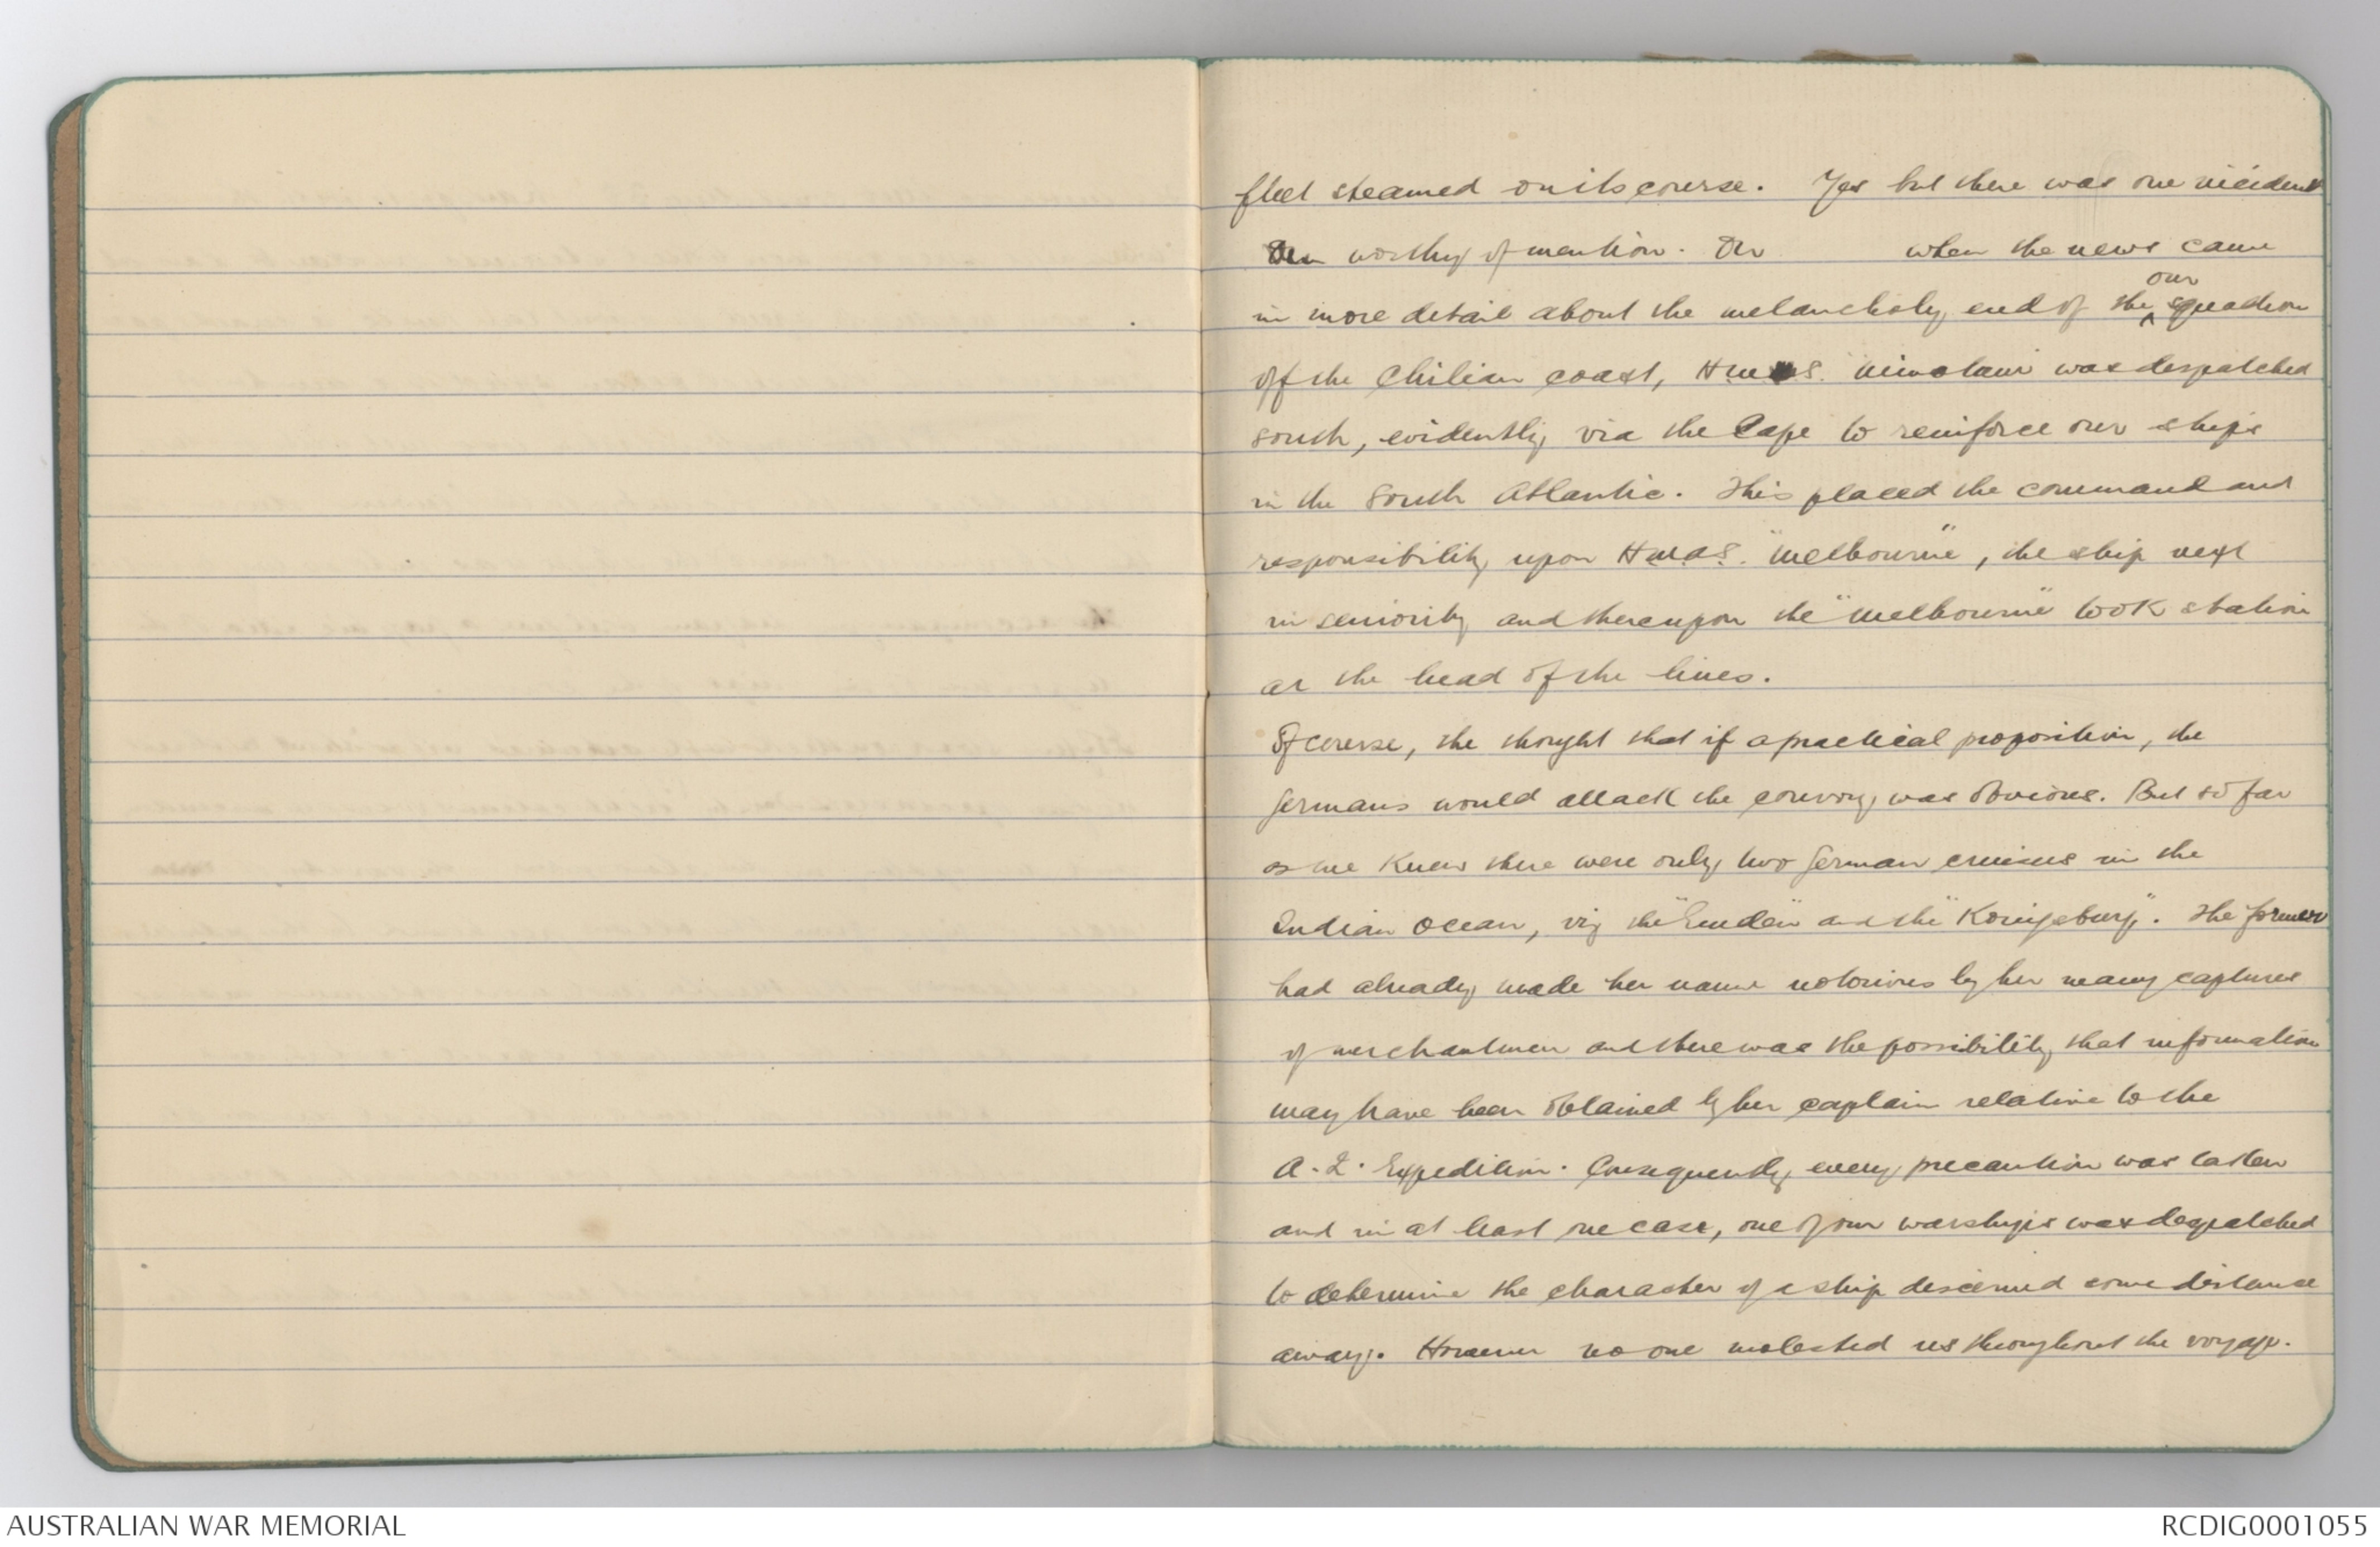 fleet steamed on its course. Yes but there was one incident
worthy of mention. On when the news came
our
in more detail about the melancholy end of the squadron
off the Chilian coast, H.M.S. Minotaur was despatched
south, evidently via the Cape to reinforce our ships
in the South Atlantic. This placed the command and
responsibility upon H.M.A.S. "Melbourne", the ship next
in seniority and thereupon the "Melbourne" took station
at the head of the lines.
Of course, the thought that if a practical proposition, the
Germans would attack the convoy, was obvious. But so far
as we knew there were only two German cruisers in the
Indian Ocean, viz the "Emden" and the "Konigsburg". The former
had already made her name notorious by her many captures
of merchantmen and there was the possibility that information
may have been obtained by her captain relative to the
A.I. Expedition. Consequently every precaution was taken
and in at least one case, one of our warships was despatched
to determine the character of a ship discerned some distance
away. However no one molested us throughout the voyage.
AUSTRALIAN WAR MEMORIAL
RCDIG0001055